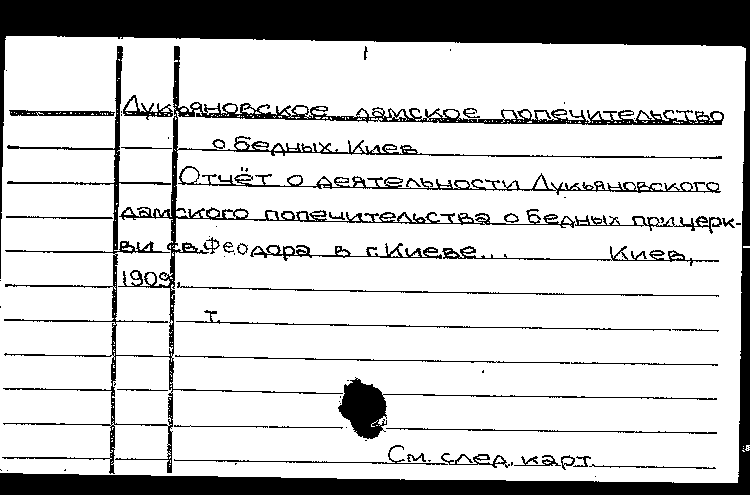 Лукьяновское дамское попечительство
о бедных. Киев
Отчёт о деятельности Лукьяновского
дамского попечительства о бедных при церк-
ви св. Феодора в г. Киеве... Киев,
1909.
т.
См. след. карт.